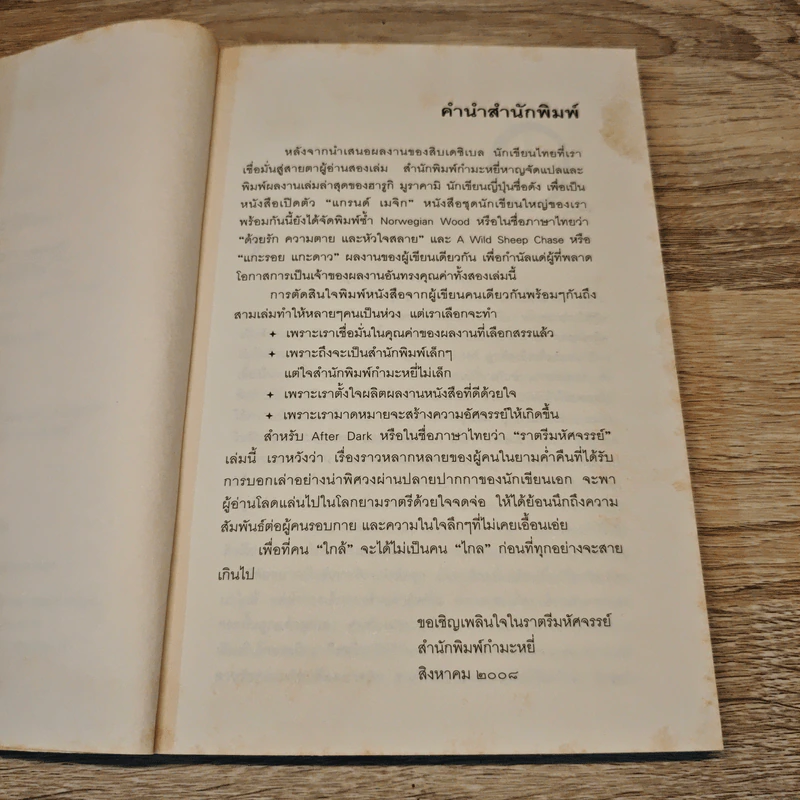 คำนำสำนักพิมพ์
หลังจากนำเสนอผลงานของสิบเดซิเบล นักเขียนไทยที่เรา
เชื่อมั่นสู่สายตาผู้อ่านสองเล่ม สำนักพิมพ์กำมะหยี่หาญจัดแปลและ
พิมพ์ผลงานเล่มล่าสุดของฮารูกิ มูราคามิ นักเขียนญี่ปุ่นชื่อดัง เพื่อเป็น
หนังสือเปิดตัว “แกรนด์ เมจิก” หนังสือชุดนักเขียนใหญ่ของเรา
พร้อมกันนี้ยังได้จัดพิมพ์ซ้ำ Norwegian Wood หรือในชื่อภาษาไทยว่า
“ด้วยรัก ความตาย และหัวใจสลาย” และ A Wild Sheep Chase หรือ
“แกะรอย แกะดาว” ผลงานของผู้เขียนเดียวกัน เพื่อกำนัลแด่ผู้ที่พลาด
โอกาสการเป็นเจ้าของผลงานอันทรงคุณค่าทั้งสองเล่มนี้
การตัดสินใจพิมพ์หนังสือจากผู้เขียนคนเดียวกันพร้อมๆกันถึง
สามเล่มทำให้หลายๆคนเป็นห่วง แต่เราเลือกจะทำ
✦ เพราะเราเชื่อมั่นในคุณค่าของผลงานที่เลือกสรรแล้ว
✦ เพราะถึงจะเป็นสำนักพิมพ์เล็กๆ
แต่ใจสำนักพิมพ์กำมะหยี่ไม่เล็ก
✦ เพราะเราตั้งใจผลิตผลงานหนังสือที่ดีด้วยใจ
✦ เพราะเรามาดหมายจะสร้างความอัศจรรย์ให้เกิดขึ้น
สำหรับ After Dark หรือในชื่อภาษาไทยว่า “ราตรีมหัศจรรย์”
เล่มนี้ เราหวังว่า เรื่องราวหลากหลายของผู้คนในยามค่ำคืนที่ได้รับ
การบอกเล่าอย่างน่าพิศวงผ่านปลายปากกาของนักเขียนเอก จะพา
ผู้อ่านโลดแล่นไปในโลกยามราตรีด้วยใจจดจ่อ ให้ได้ย้อนนึกถึงความ
สัมพันธ์ต่อผู้คนรอบกาย และความในใจลึกๆที่ไม่เคยเอื้อนเอ่ย
เพื่อที่คน “ใกล้” จะได้ไม่เป็นคน “ไกล” ก่อนที่ทุกอย่างจะสาย
เกินไป
ขอเชิญเพลินใจในราตรีมหัศจรรย์
สำนักพิมพ์กำมะหยี่
สิงหาคม ๒๐๐๘